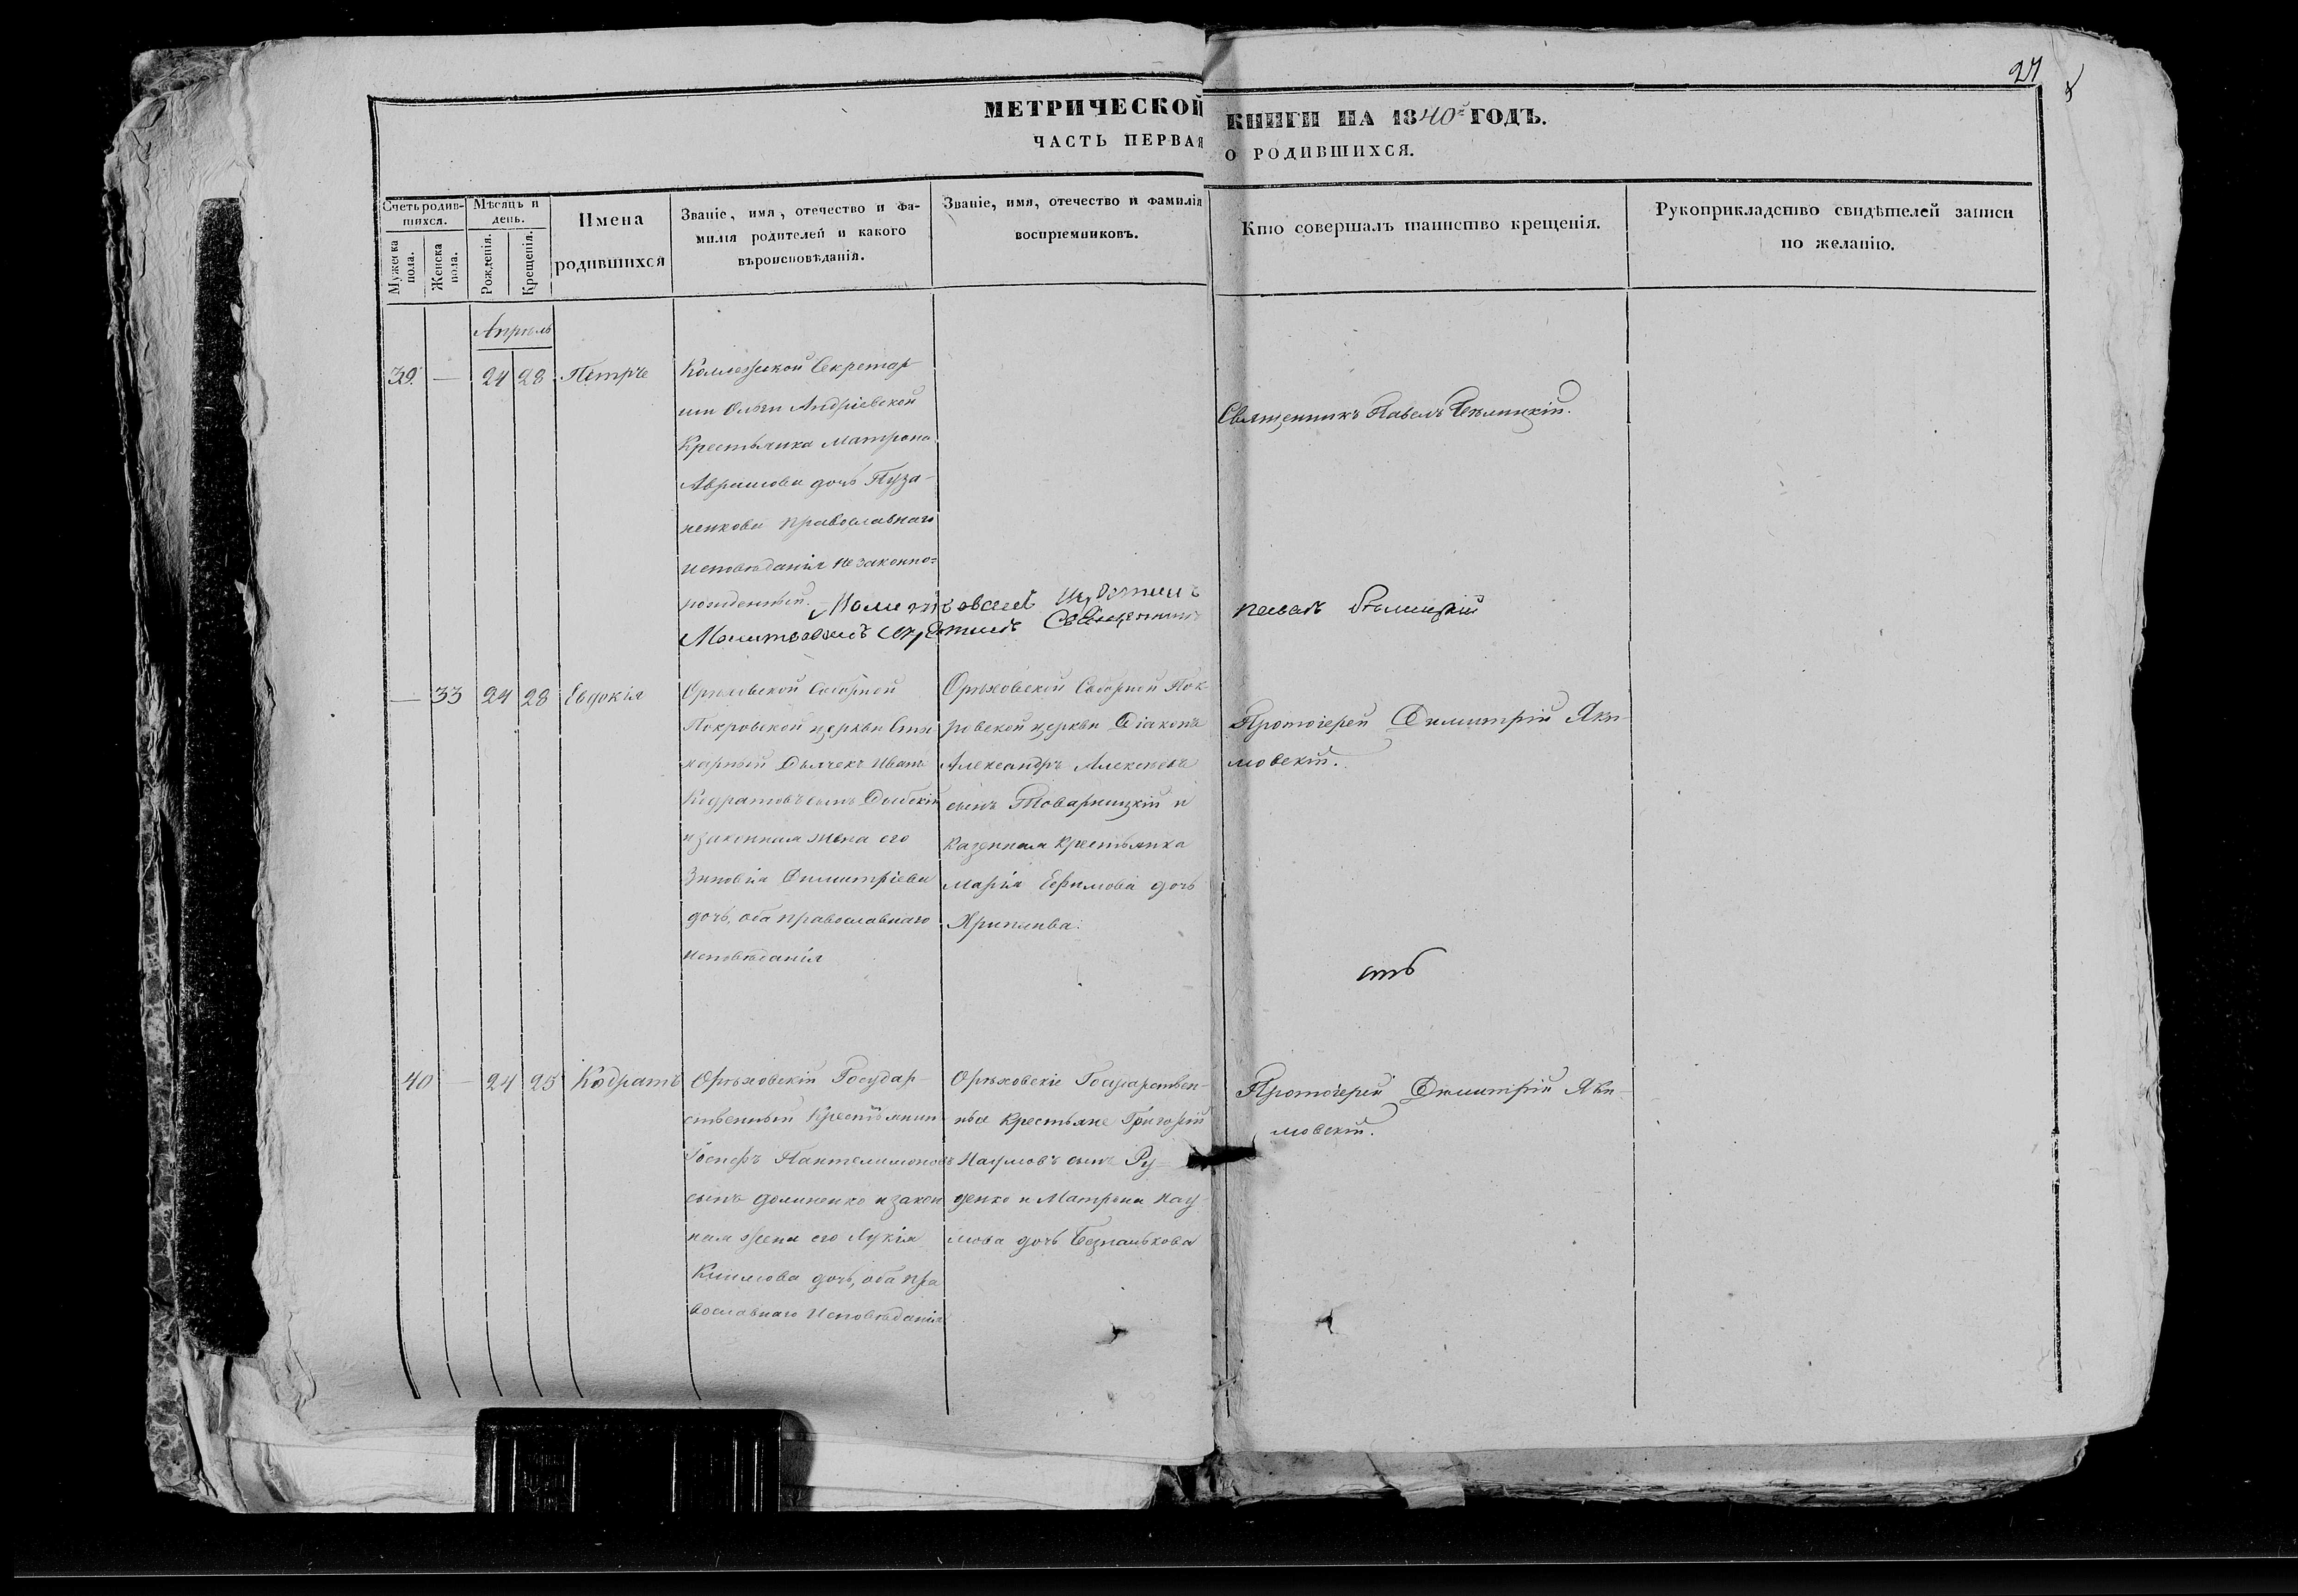 27
МЕТРИЧЕСКОЙ КНИГИ НА 1840й ГОДЪ.
ЧАСТЬ ПЕРВАЯ О РОДИВШИХСЯ.
Счетъ родив-
шихся.
Мужеска
пола.
Женска
пола.
Мѣсяцъ и
день.
Рожденія.
Крещенія.
Имена
родившихся
Званіе, имя, отечество и фа-
милія родителей и какого
вѣроисповѣданія.
Званіе, имя, отечество и фамилія
воспріемниковъ.
Кто совершалъ таинство крещенія.
Рукоприкладство свидѣтелей записи
по желанію.
Апрѣль
39. — 24 28 Петръ
Коллежской Секретар-
ши Ольги Андріевской
Крестьянка Матрона
Аврамова дочь Пуза-
ненкова православнаго
исповѣданія незаконно=
рожденный.
Священникъ Павелъ Бѣлицкій.
Молитвовалъ и крестилъ Священникъ
Павелъ Бѣлицкій
— 33 24 28 Евдокія
Орѣховской Соборной
Покровской церкви
Дьячекъ Иванъ
Кодратовъ сынъ
и законная жена его
Зиновія Димитріева
дочь, оба православнаго
исповѣданія
Орѣховской Соборной Пок-
ровской церкви Діаконъ
Александръ Алексѣевъ
сынъ Товарницкій и
казенная крестьянка
Марія Ефимова дочь
Протоіерей Димитрій Яки-
мовскій.
40 — 24 25 Кодратъ
Орѣховскій Государ-
ственный Крестьянинъ
Іосифъ Пантелимоновъ
сынъ Долиненко и закон
ная жена его Лукія
Климова дочь, оба пра
вославнаго Исповѣданія
Орѣховскіе Государствен-
ные крестьяне Григорій
Наумовъ сынъ Ру-
денко и Матрона Нау-
мова дочь
Протоіерей Димитрій Яки-
мовскій.